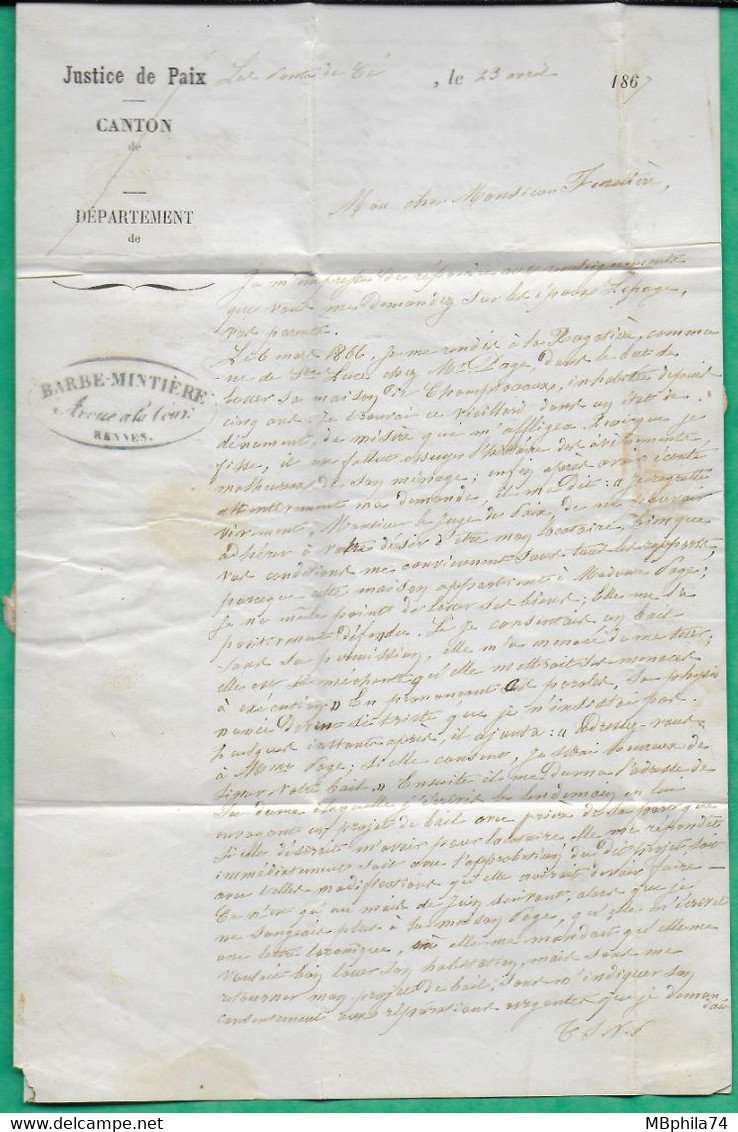 Justice de Paix
Les Ponts de Cé, le 23 avril 1867
CANTON
de
DÉPARTEMENT
de
Mon cher Monsieur
Je m'empresse de répondre aux renseignements
que vous me demandez sur les époux Lepage,
vos parents.
BARBE-MINTIÈRE
Avoué à la Cour
RENNES.
Le 6 mai 1866, je me rendis à la Ragotière, commu
ne de Ste Luce chez Mr Page, dans le but de
louer sa maison de Champtoceaux, inhabitée depuis
cinq ans. Je trouvai ce vieillard dans un état de
dénument, de misère qui m'affligea. Quoique je
fisse, il me fallut essuyer l'histoire des évènements
malheureux de son ménage; enfin après avoir écouté
attentivement ma demande, il me dit: "je regrette
vivement, Monsieur le Juge de Paix, de ne pouvoir
adhérer à votre désir d'être mon locataire, bien que
vos conditions me conviennent sous tous les rapports,
parceque cette maison appartient à Madame Page;
je ne me mêle point de louer ses biens; Elle me l'a
positivement défendu. Si je consentais un bail
sans sa permission, elle m'a menacé de me tuer,
elle est si méchante qu'elle mettrait ses menaces
à exécution" En prononçant ces paroles, sa physio
nomie devint si triste que je n'insistai pas.
Quelques instants après, il ajouta: "Adressez-vous
à Mme Page; si elle consent, je serai heureux de
signer votre bail" Ensuite il me donna l'adresse de
sa dame à laquelle j'écrivis le lendemain en lui
envoyant un projet de bail avec prière de sa part que
si elle désirait m'avoir pour locataire elle me répondit
immédiatement soit avec l'approbation du dit projet soit
avec telles modifications qu'elle croirait devoir faire —
Ce n'est qu'au mois de Juin suivant, alors que je
ne songeais plus à la maison Page, qu'elle m'écrivit
une lettre laconique, où elle me mandait qu'elle me
voulait bien louer son habitation, mais sans me
retourner mon projet de bail, sans m'indiquer son
consentement aux réparations urgentes que je deman
dais
T S V P
MBphila74